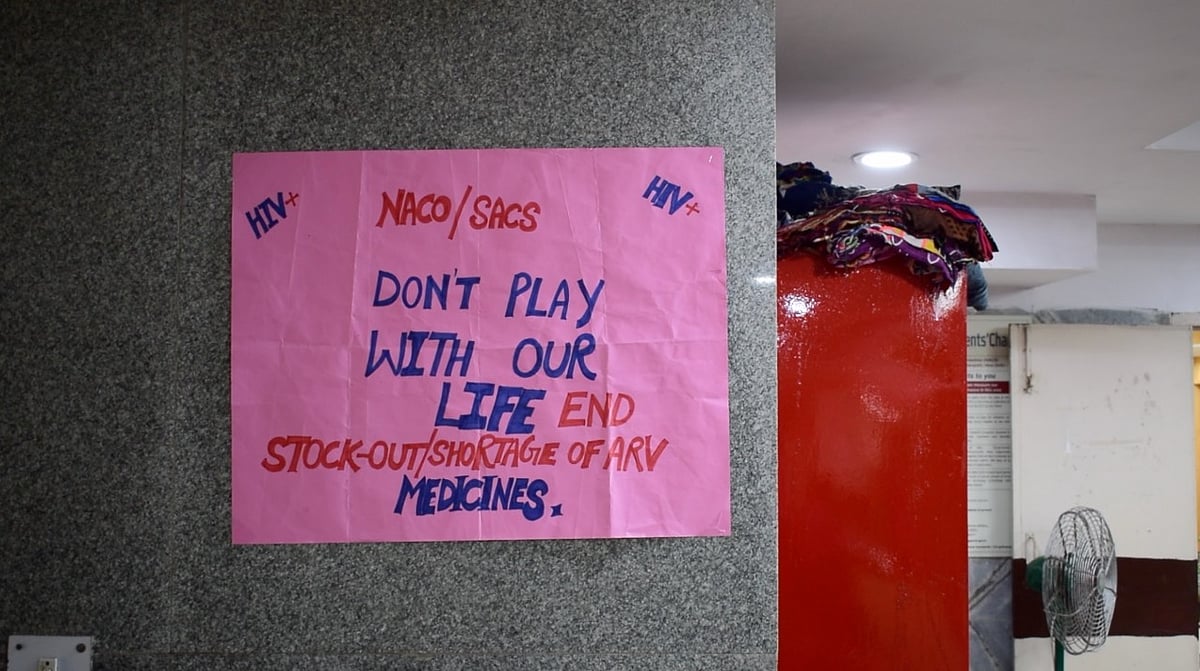 HIV+
NACO/SACS
HIV+
DON'T PLAY
WITH OUR
LIFE END
STOCK-OUT/SHORTAGE OF ARV
MEDICINES.
ents' Cha
ts to you